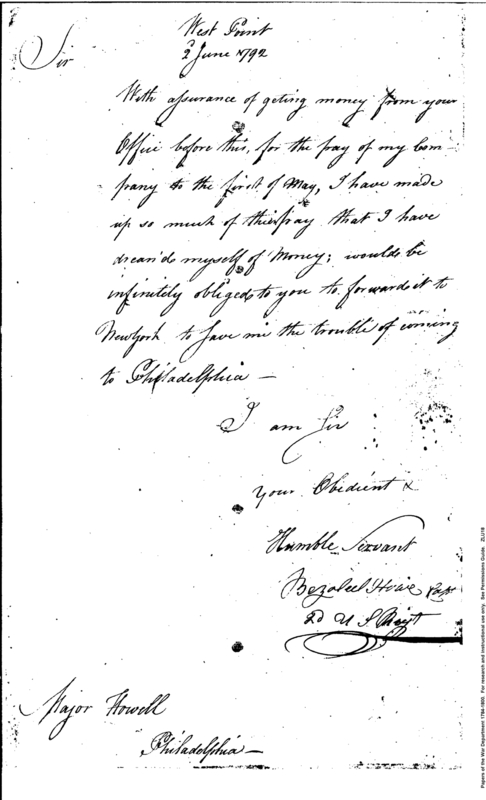 West Point
2 June 1792
Sir
With assurance of geting money from your
Office before this, for the pay of my Com-
pany to the first of May, I have made
up so much of their pay that I have
drean'd myself of Money; would be
infinitely obliged to you to forward it to
NewYork to save me the trouble of coming
to Philadelphia —
I am Sir
your Obedient &
Humble Servant
Bezaleel Howe Capt
2d U S Regt
Major Howell
Philadelphia —
Papers of the War Department 1784-1800. For research and instructional use only. See Permissions Guide. ZLU16